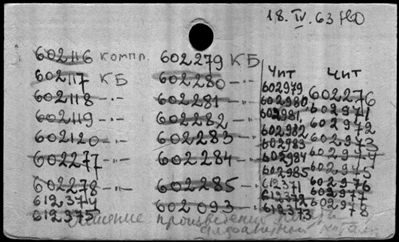 18.IV.63
602116 компл.
602117 КБ
602118 -"-
602119 -"-
602120 -"-
602277 -"-
602278 -"-
612374
612375
602279 КБ
602280 -"-
602281 -"-
602282 -"-
602283 -"-
602284 -"-
602285 -"-
602093 -"-
Чит
602979
602980
602981
602982
602983
602984
602985
612371
612372
612373
Чит
602276
602971
602972
602973
602974
602975
602976
602977
78